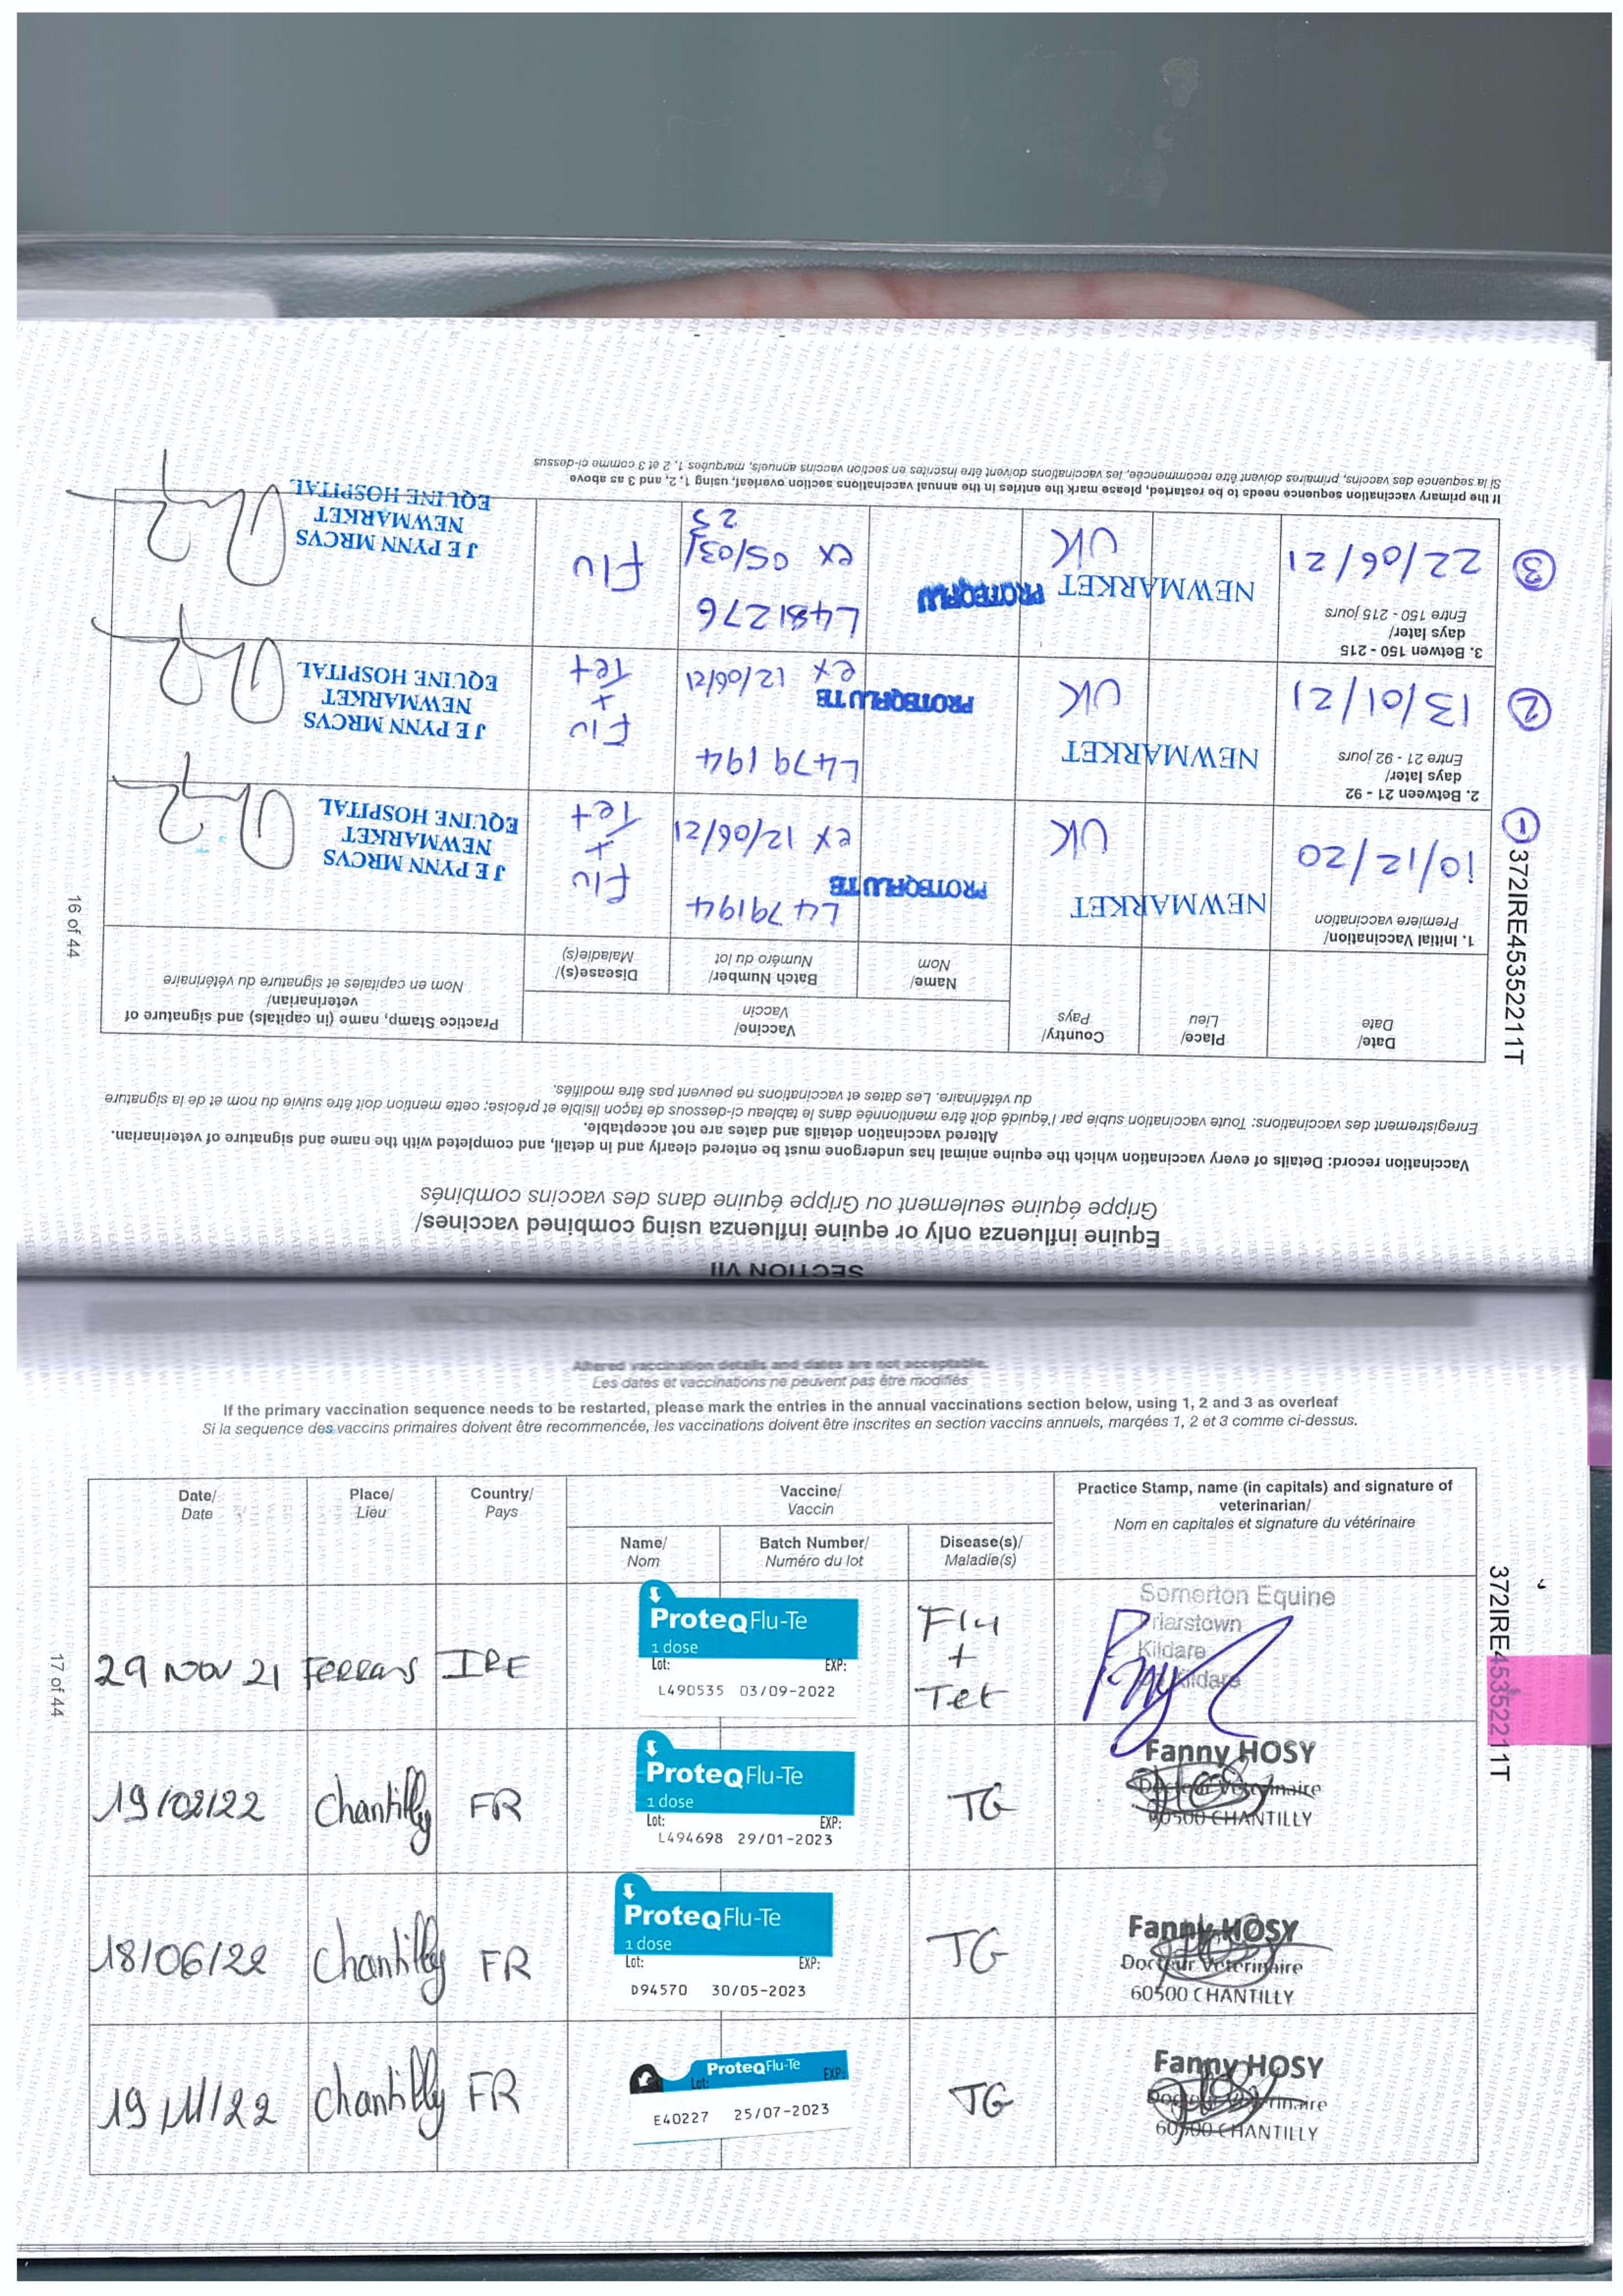 SECTION VII
Equine influenza only or equine influenza using combined vaccines/
Grippe équine seulement ou Grippe équine dans des vaccins combinés
Vaccination record: Details of every vaccination which the equine animal has undergone must be entered clearly and in detail, and completed with the name and signature of veterinarian.
Altered vaccination details and dates are not acceptable.
Enregistrement des vaccinations: Toute vaccination subie par l'équidé doit être mentionnée dans le tableau ci-dessous de façon lisible et précise; cette mention doit être suivie du nom et de la signature
du vétérinaire. Les dates et vaccinations ne peuvent pas être modifiés.
Date/
Date
Place/
Lieu
Country/
Pays
Vaccine/
Vaccin
Name/
Nom
Batch Number/
Numéro du lot
Disease(s)/
Maladie(s)
Practice Stamp, name (in capitals) and signature of
veterinarian/
Nom en capitales et signature du vétérinaire
1. Initial Vaccination/
Première vaccination
1
10/12/20
NEWMARKET
UK
PROTEQFLU TE
L479194
ex 12/06/21
Flu
+
Tet
J E PYNN MRCVS
NEWMARKET
EQUINE HOSPITAL
2. Between 21 - 92
days later/
Entre 21 - 92 jours
2
13/01/21
NEWMARKET
UK
PROTEQFLU TE
L479194
ex 12/06/21
Flu
+
Tet
J E PYNN MRCVS
NEWMARKET
EQUINE HOSPITAL
3. Betwen 150 - 215
days later/
Entre 150 - 215 jours
3
22/06/21
NEWMARKET
UK
PROTEQFLU
L481276
ex 05/03/
23
Flu
J E PYNN MRCVS
NEWMARKET
EQUINE HOSPITAL
If the primary vaccination sequence needs to be restarted, please mark the entries in the annual vaccinations section overleaf, using 1, 2, and 3 as above.
Si la sequence des vaccins, primaires doivent être recommencée, les vaccinations doivent être inscrites en section vaccins annuels, marquées 1, 2 et 3 comme ci-dessus
372IRE45352211T
16 of 44
Altered vaccination details and dates are not acceptable.
Les dates et vaccinations ne peuvent pas être modifiés
If the primary vaccination sequence needs to be restarted, please mark the entries in the annual vaccinations section below, using 1, 2 and 3 as overleaf
Si la sequence des vaccins primaires doivent être recommencée, les vaccinations doivent être inscrites en section vaccins annuels, marqées 1, 2 et 3 comme ci-dessus.
Date/
Date
Place/
Lieu
Country/
Pays
Vaccine/
Vaccin
Name/
Nom
Batch Number/
Numéro du lot
Disease(s)/
Maladie(s)
Practice Stamp, name (in capitals) and signature of
veterinarian/
Nom en capitales et signature du vétérinaire
29 NOV 21
IRE
ProteqFlu-Te
1 dose
Lot: EXP:
L490535 03/09-2022
Flu
+
Tet
Somerton Equine
Friarstown
Kildare
Kildare
19/02/22
Chantilly
FR
ProteqFlu-Te
1 dose
Lot: EXP:
L494698 29/01-2023
TG
Fanny HOSY
Docteur Vétérinaire
60500 CHANTILLY
18/06/22
Chantilly
FR
ProteqFlu-Te
1 dose
Lot: EXP:
D94570 30/05-2023
TG
Fanny HOSY
Docteur Vétérinaire
60500 CHANTILLY
19/11/22
Chantilly
FR
ProteqFlu-Te
Lot: EXP:
E40227 25/07-2023
TG
Fanny HOSY
Docteur Vétérinaire
60500 CHANTILLY
372IRE45352211T
17 of 44